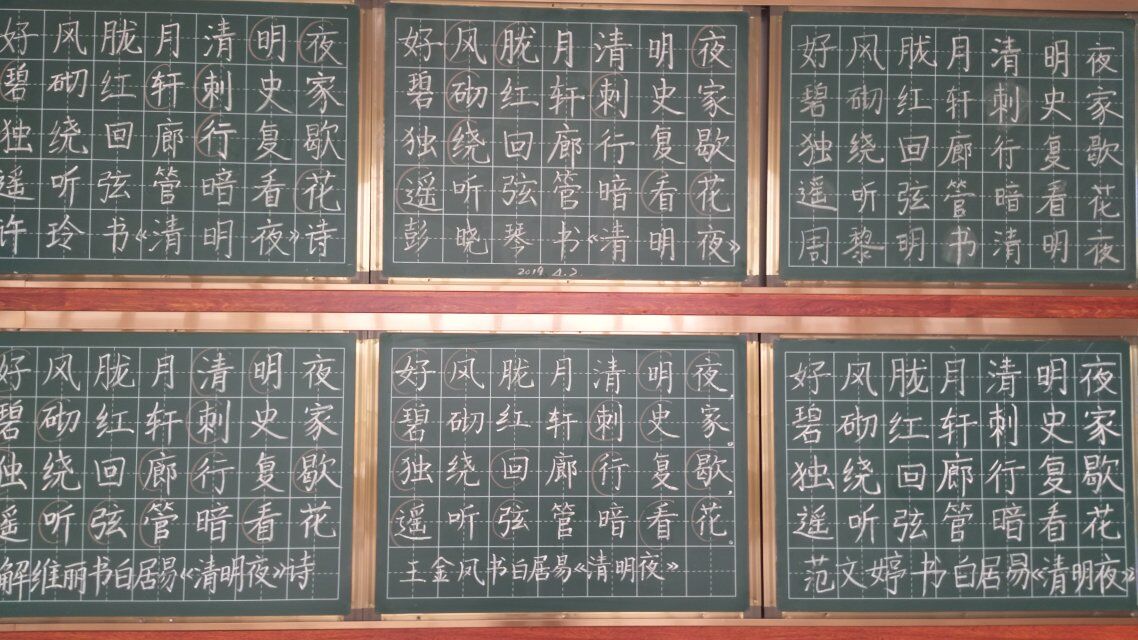 好风胧月清明夜
碧砌红轩刺史家
独绕回廊行复歇
遥听弦管暗看花
许玲书《清明夜》诗
好风胧月清明夜
碧砌红轩刺史家
独绕回廊行复歇
遥听弦管暗看花
彭晓琴书《清明夜》
2019 4.2
好风胧月清明夜
碧砌红轩刺史家
独绕回廊行复歇
遥听弦管暗看花
周黎明书清明夜
好风胧月清明夜
碧砌红轩刺史家
独绕回廊行复歇
遥听弦管暗看花
解维丽书白居易《清明夜》诗
好风胧月清明夜
碧砌红轩刺史家。
独绕回廊行复歇
遥听弦管暗看花。
王金凤书白居易《清明夜》
好风胧月清明夜
碧砌红轩刺史家
独绕回廊行复歇
遥听弦管暗看花
范文婷书白居易《清明夜》